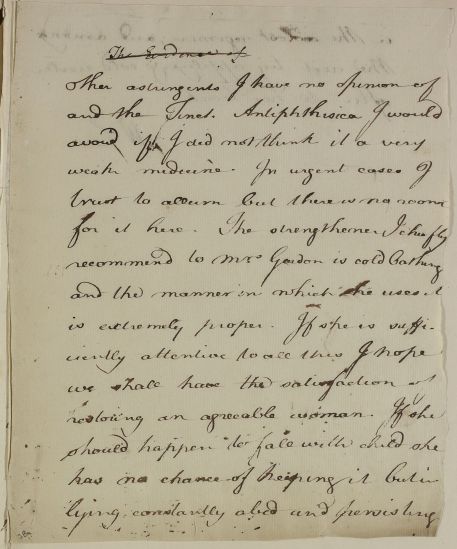 The Evidence of
other astringents I have no opinion of
and the Tinct. Antiphthisica I would
avoid if I did not think it a very
weak medicine. In urgent cases I
trust to allum but there is no room
for it here. The strengthener I chiefly
recommend to Mrs Gordon is cold bathing
and the manner in which she uses it
is extremely proper. If she is suffi-
ciently attentive to all this I hope
we shall have the satisfaction of
restoring an agreeable woman. If she
should happen to fall with child she
has no chance of keeping it but in
lying constantly abed and persisting